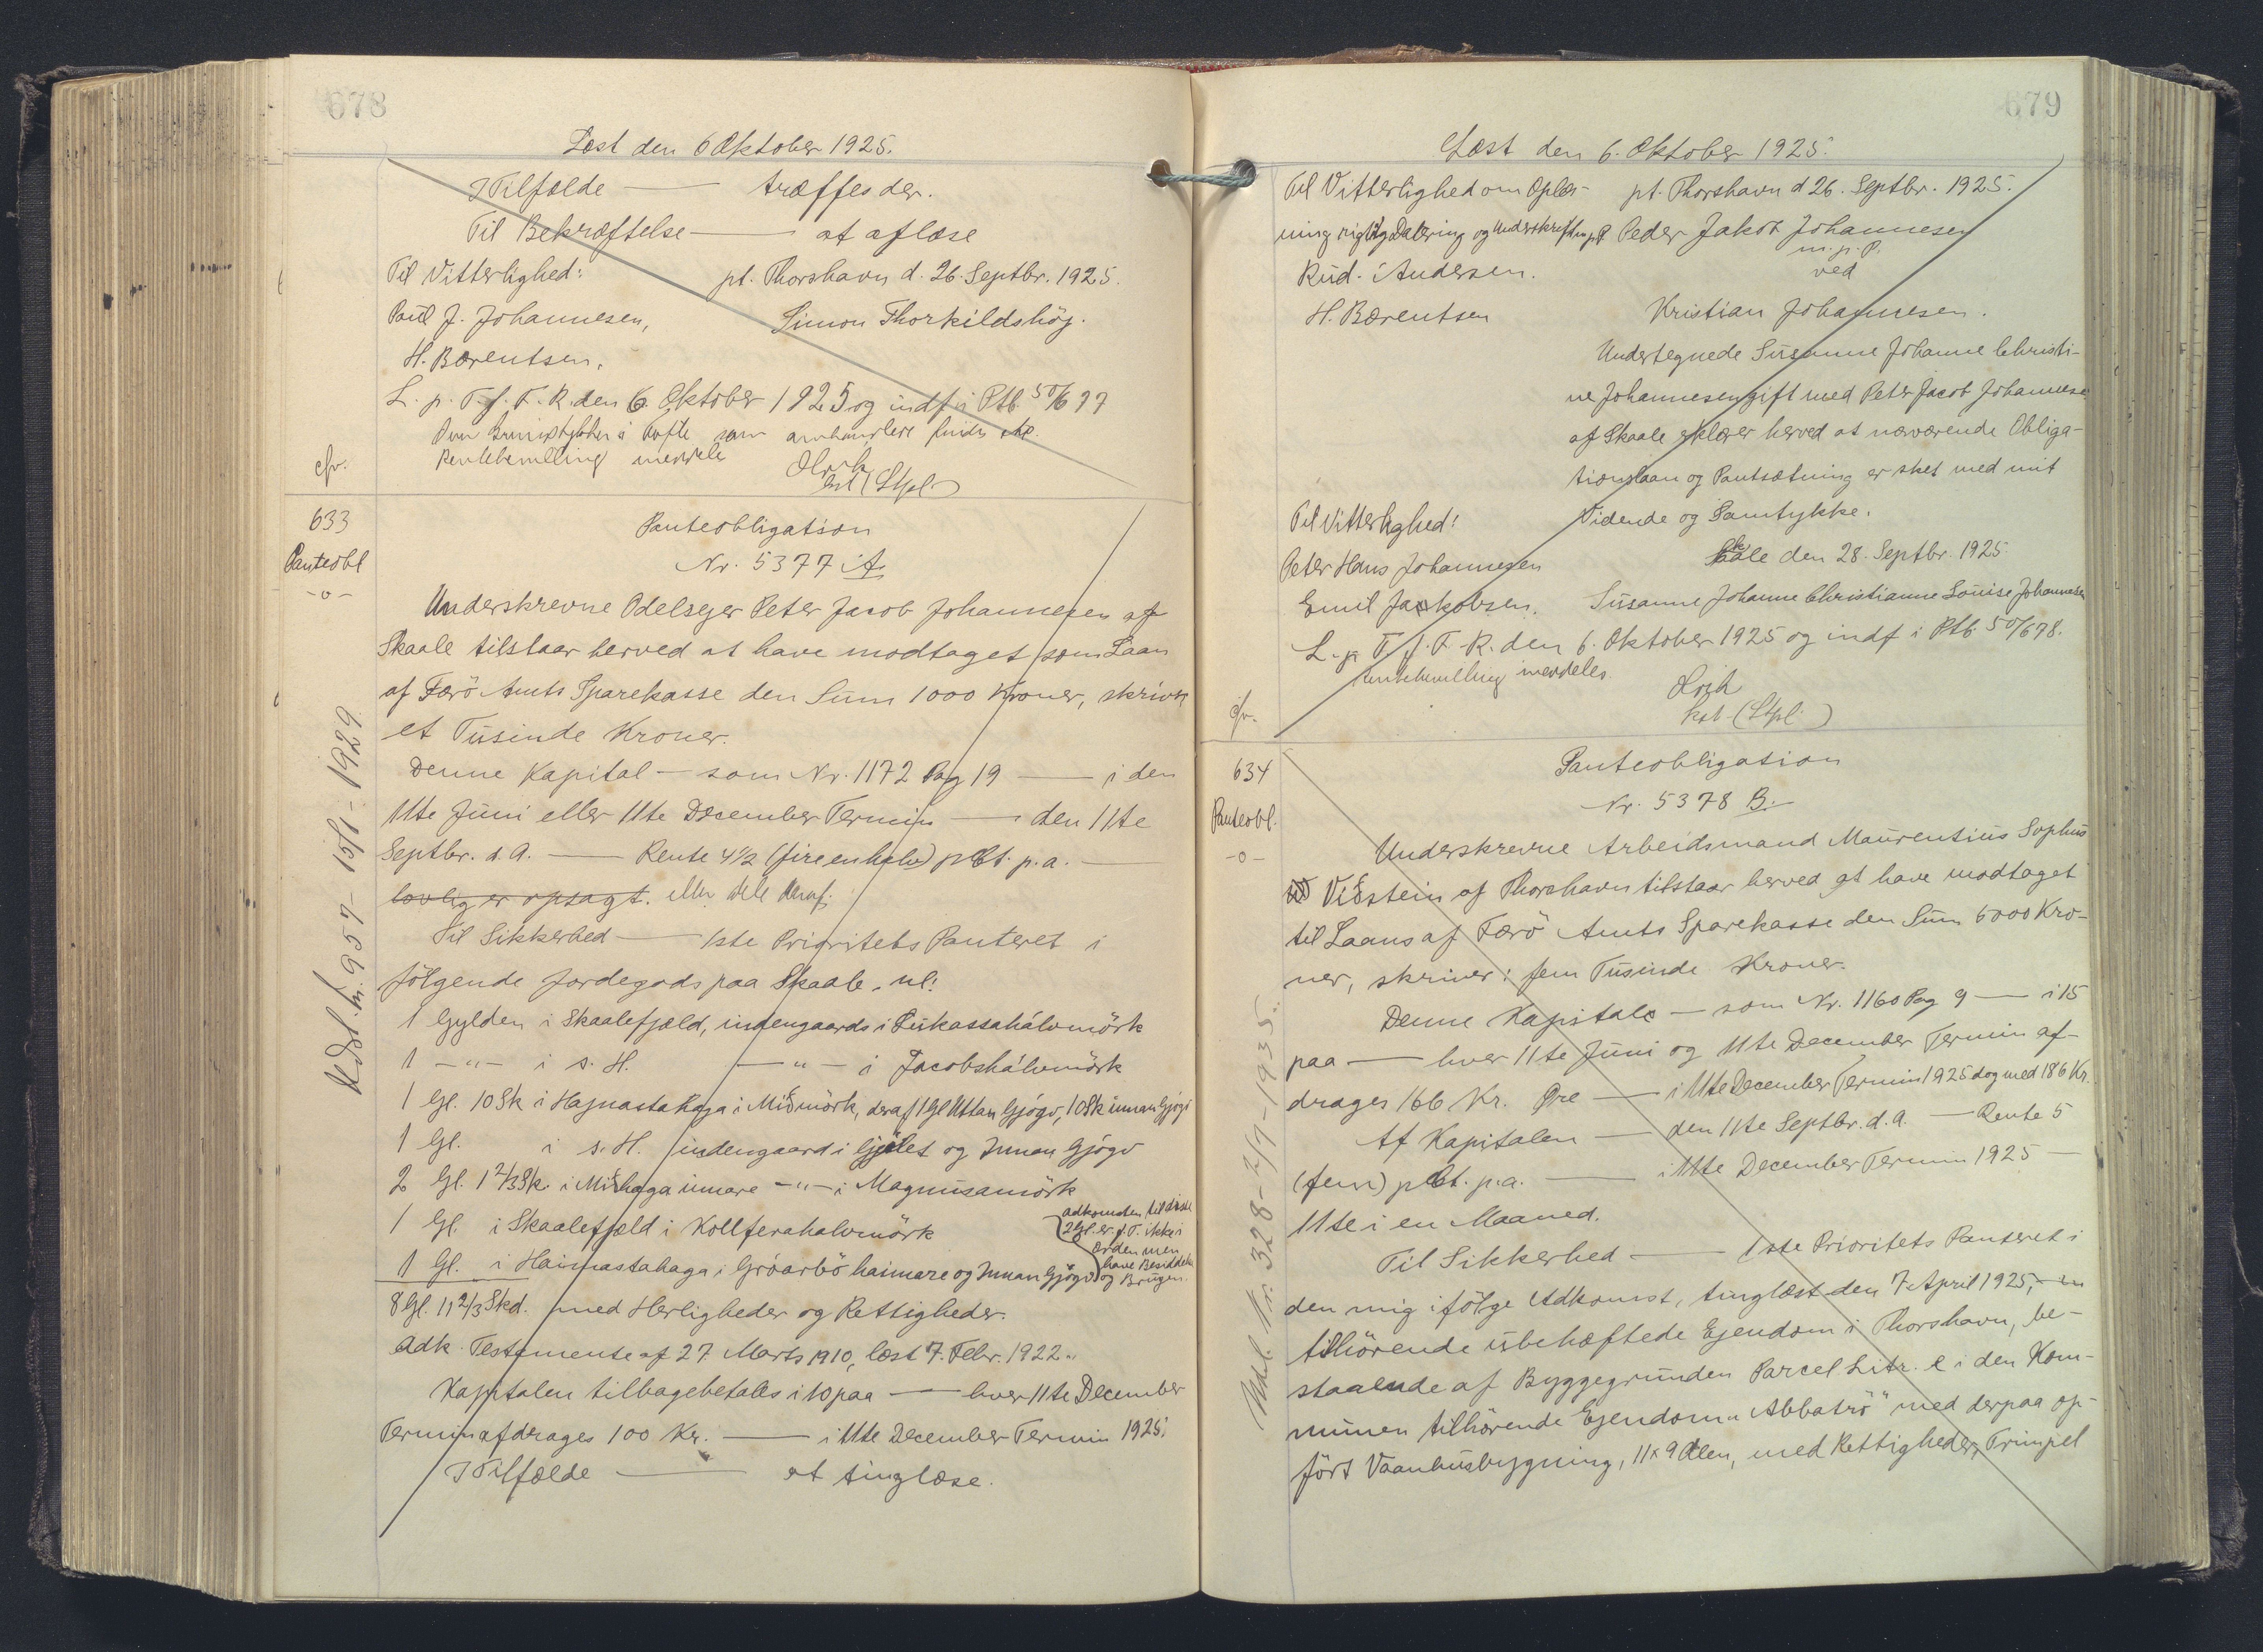 678
Læst den 6 Oktober 1925.
I Tilfælde — træffes der.
Til Bekræftelse — at aflæse
Til Vitterlighed: pt. Thorshavn d. 26. Septbr. 1925.
Poul J. Johannesen, Simon Thorkildshöj.
H. Bærentsen.
L. p. T. f. F. R. den 6. Oktober 1925 og indf. i Ptb. 50/677
i Tofte som
cfr. Rentebevilling meddeles
(Stpl.)
633
Panteobl
-o-
Panteobligation
Nr. 5377 A
Underskrevne Odelsejer Peter Jacob Johannesen af
Skaale tilstaar herved at have modtaget som Laan
af Færö Amts Sparekasse den Sum 1000 Kroner, skriver
et Tusinde Kroner.
Denne Kapital — som Nr. 1172 Pag 19 — i den
11te Juni eller 11te December Termin — den 11te
Septbr. d. A. — Rente 4½ (fire en halv) pCt. p.a. —
lovlig er opsagt. eller dele deraf.
Til Sikkerhed — 1ste Prioritets Panteret i
fölgende Jordegods paa Skaale, nl:
1 Gylden i Skaalefjæld, indengaards i Lukassahálvmörk
1 -"- i s. H. -"- i Jacobshálvmörk
1 Gl. 10 Sk i Hajnasta Haga i Miðmörk, deraf 1 Gl Uttan Gjógv, 10 Sk innan Gjógv
1 Gl. i s. H. indengaard i Gjótet og Innan Gjógv
2 Gl. 1 2/3 Sk. i Miðhaga innare -"- i Magnusamörk
1 Gl. i Skaalefjæld i Kollferahalvmörk
1 Gl. i Haimastahaga i Gróarbö haimare og Innan Gjógv
adkomsten til disse
2 Gl. er f. T. ikke i
Orden men
have Besiddelse
og Brugen.
8 Gl. 11 2/3 Skd. med Herligheder og Rettigheder.
Adk. Testamente af 27. Marts 1910, læst 7. Febr. 1922.
Kapitalen tilbagebetales i 10 paa — hver 11te December
Termin afdrages 100 Kr. — i 11te December Termin 1925.
I Tilfælde — at tinglæse.
Udsl. Nr. 957 - 15/1 - 1929
679
Læst den 6. Oktober 1925.
Til Vitterlighed om Oplæs- pt. Thorshavn d 26. Septbr. 1925.
ning rigtig Datering og Underskriften Peder Jakob Johannesen
m. p. P.
Rud. Andersen. ved
H. Bærentsen Kristian Johannesen.
Undertegnede Susanne Johanne Christi-
ne Johannesen gift med Peter Jacob Johannese
af Skaale erklærer herved at nærværende Obliga-
tionslaan og Pantsætning er sket med mit
Til Vitterlighed: Vidende og Samtykke.
Skaale den 28. Septbr. 1925
Peter Hans Johannesen
Emil Jackobsen. Susanne Johanne Christianne Louise Johannesen
L. p. T. f. F. R. den 6. Oktober 1925 og indf i Ptb. 50/678.
Rentebevilling meddeles.
cfr. (Stpl.)
634
Panteobl.
-o-
Panteobligation
Nr. 5378 B.
Underskrevne Arbeidsmand Maurentius Sophus
Viðstein af Thorshavn tilstaar herved at have modtaget
til Laans af Færö Amts Sparekasse den Sum 5000 Kro-
ner, skriver: fem Tusinde Kroner.
Denne Kapitale — som Nr. 1160 Pag 9 — i 15
paa — hver 11te Juni og 11te December Termin af-
drages 166 Kr. Øre — i 11te December Termin 1925 dog med 186 Kr.
Af Kapitalen — den 11te Septbr. d. A. — Rente 5
(fem) pCt. p.a. — i 11te December Termin 1925 —
11te i en Maaned.
Til Sikkerhed — 1ste Prioritets Panteret i
den mig ifölge Adkomst, tinglæst den 7. April 1925,
tilhörende ubehæftede Ejendom i Thorshavn, be-
staaende af Byggegrunden Parcel Litr. e i den Kom-
munen tilhörende Ejendom "Abbatrö" med derpaa op-
fört Vaanhusbygning, 11 x 9 Alen, med Rettigheder, Trimpel
Udsl. Nr. 328 - 2/7 - 1935.